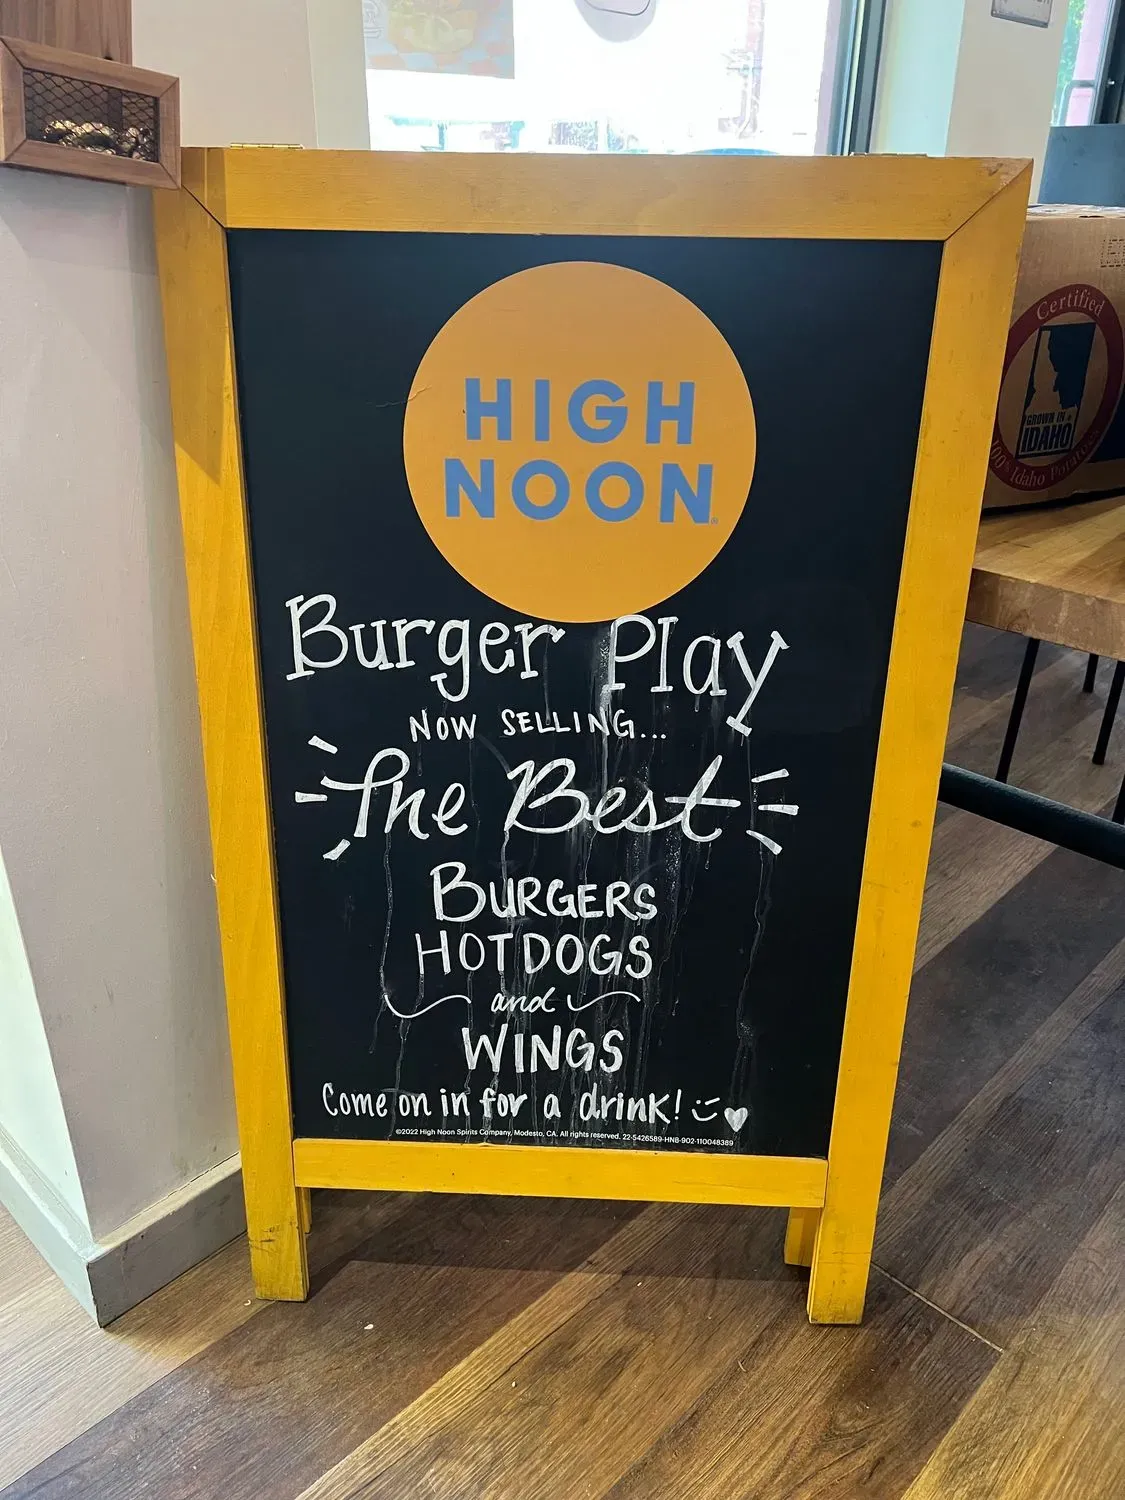 HIGH
NOON
Burger Play
NOW SELLING...
The Best
BURGERS
HOTDOGS
and
WINGS
Come on in for a drink!
©2022 High Noon Spirits Company, Modesto, CA. All rights reserved. 22-5426589-HNB-902-110048389
Certified
GROWN IN
IDAHO
100% Idaho Potatoes